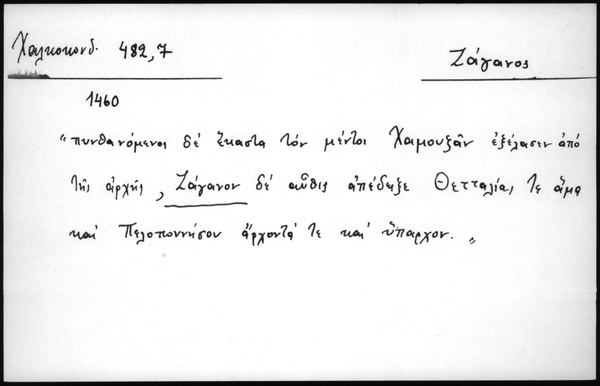 Χαλκοκονδ. 482,7
Ζάγανος
1460
"πυνθανόμενος δέ ἕκαστα τόν μέντοι Χαμουζᾶν ἐξέλασεν ἀπό
τῆς ἀρχῆς, Ζάγανον δέ αὖθις ἀπέδειξε Θετταλίας τε ἅμα
καί Πελοποννήσου ἄρχοντά τε καί ὕπαρχον."